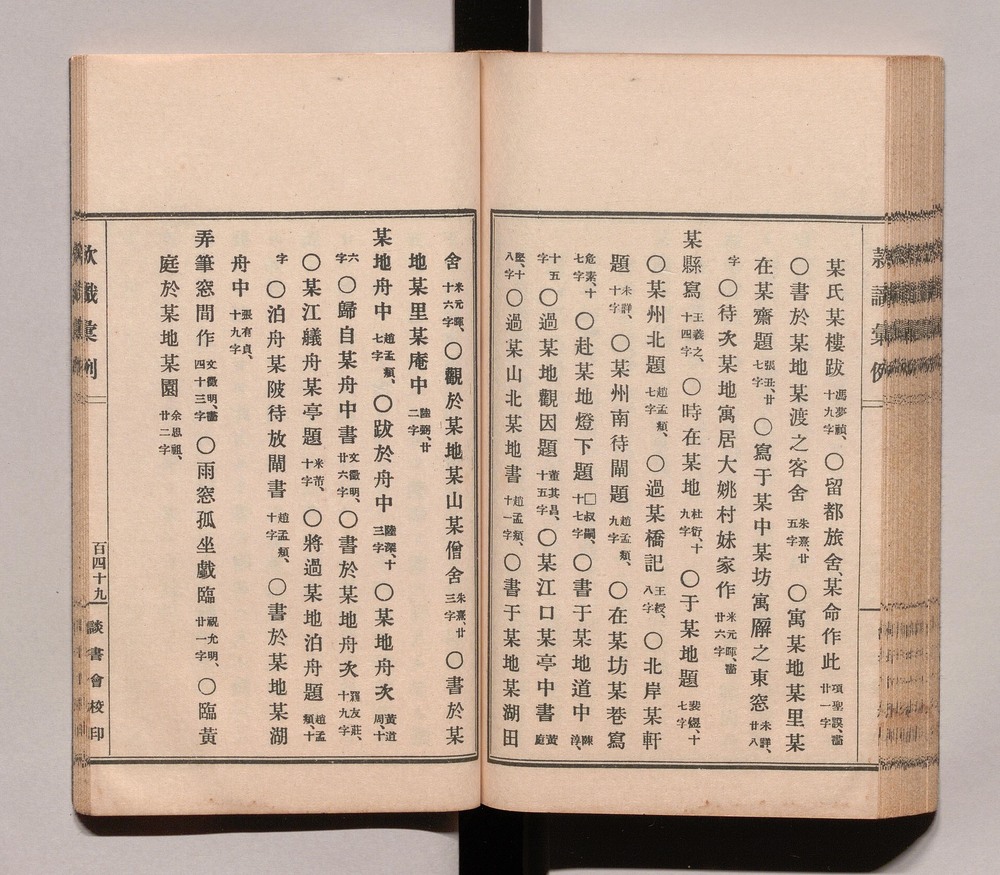 某氏某樓跋馮夢禎、十九字〇留都旅舍、某命作此項聖謨、畫廿一字
〇書於某地某渡之客舍朱熹、廿五字〇寓某地某里某
在某齋題張丑、廿七字〇寫于某中某坊寓廨之東窓未詳、廿八
字〇待次某地寓居大姚村妹家作米元暉、畫廿六字
某縣寫王羲之、十四字〇時在某地杜衍、十九字〇于某地題裴煜、十七字
〇某州北題趙孟頫、七字〇過某橋記王綬、八字〇北岸某軒
題未詳、十字〇某州南待閘題趙孟頫、九字〇在某坊某巷寫
危素、十七字〇赴某地燈下題□叔嗣、十七字〇書于某地道中陳淳、
十五字〇過某地觀因題董其昌、十五字〇某江口某亭中書黃庭
堅、十八字〇過某山北某地書趙孟頫、十一字〇書于某地某湖田
舍米元暉、十六字〇觀於某地某山某僧舍朱熹、廿三字〇書於某
地某里某庵中陸弼、廿二字
某地舟中趙孟頫、七字〇跋於舟中陸深、十三字〇某地舟次黃道周、十
六字〇歸自某舟中書文徵明、廿六字〇書於某地舟次羅友莊、十九字
〇某江艤舟某亭題米芾、十字〇將過某地泊舟題趙孟頫、十
字〇泊舟某陂待放閘書趙孟頫、十字〇書於某地某湖
舟中張有貞、十九字
弄筆窓間作文徵明、畫四十三字〇雨窓孤坐戲臨祝允明、廿一字〇臨黃
庭於某地某園余思祖、廿二字
款識彙例
百四十九
談書會校印